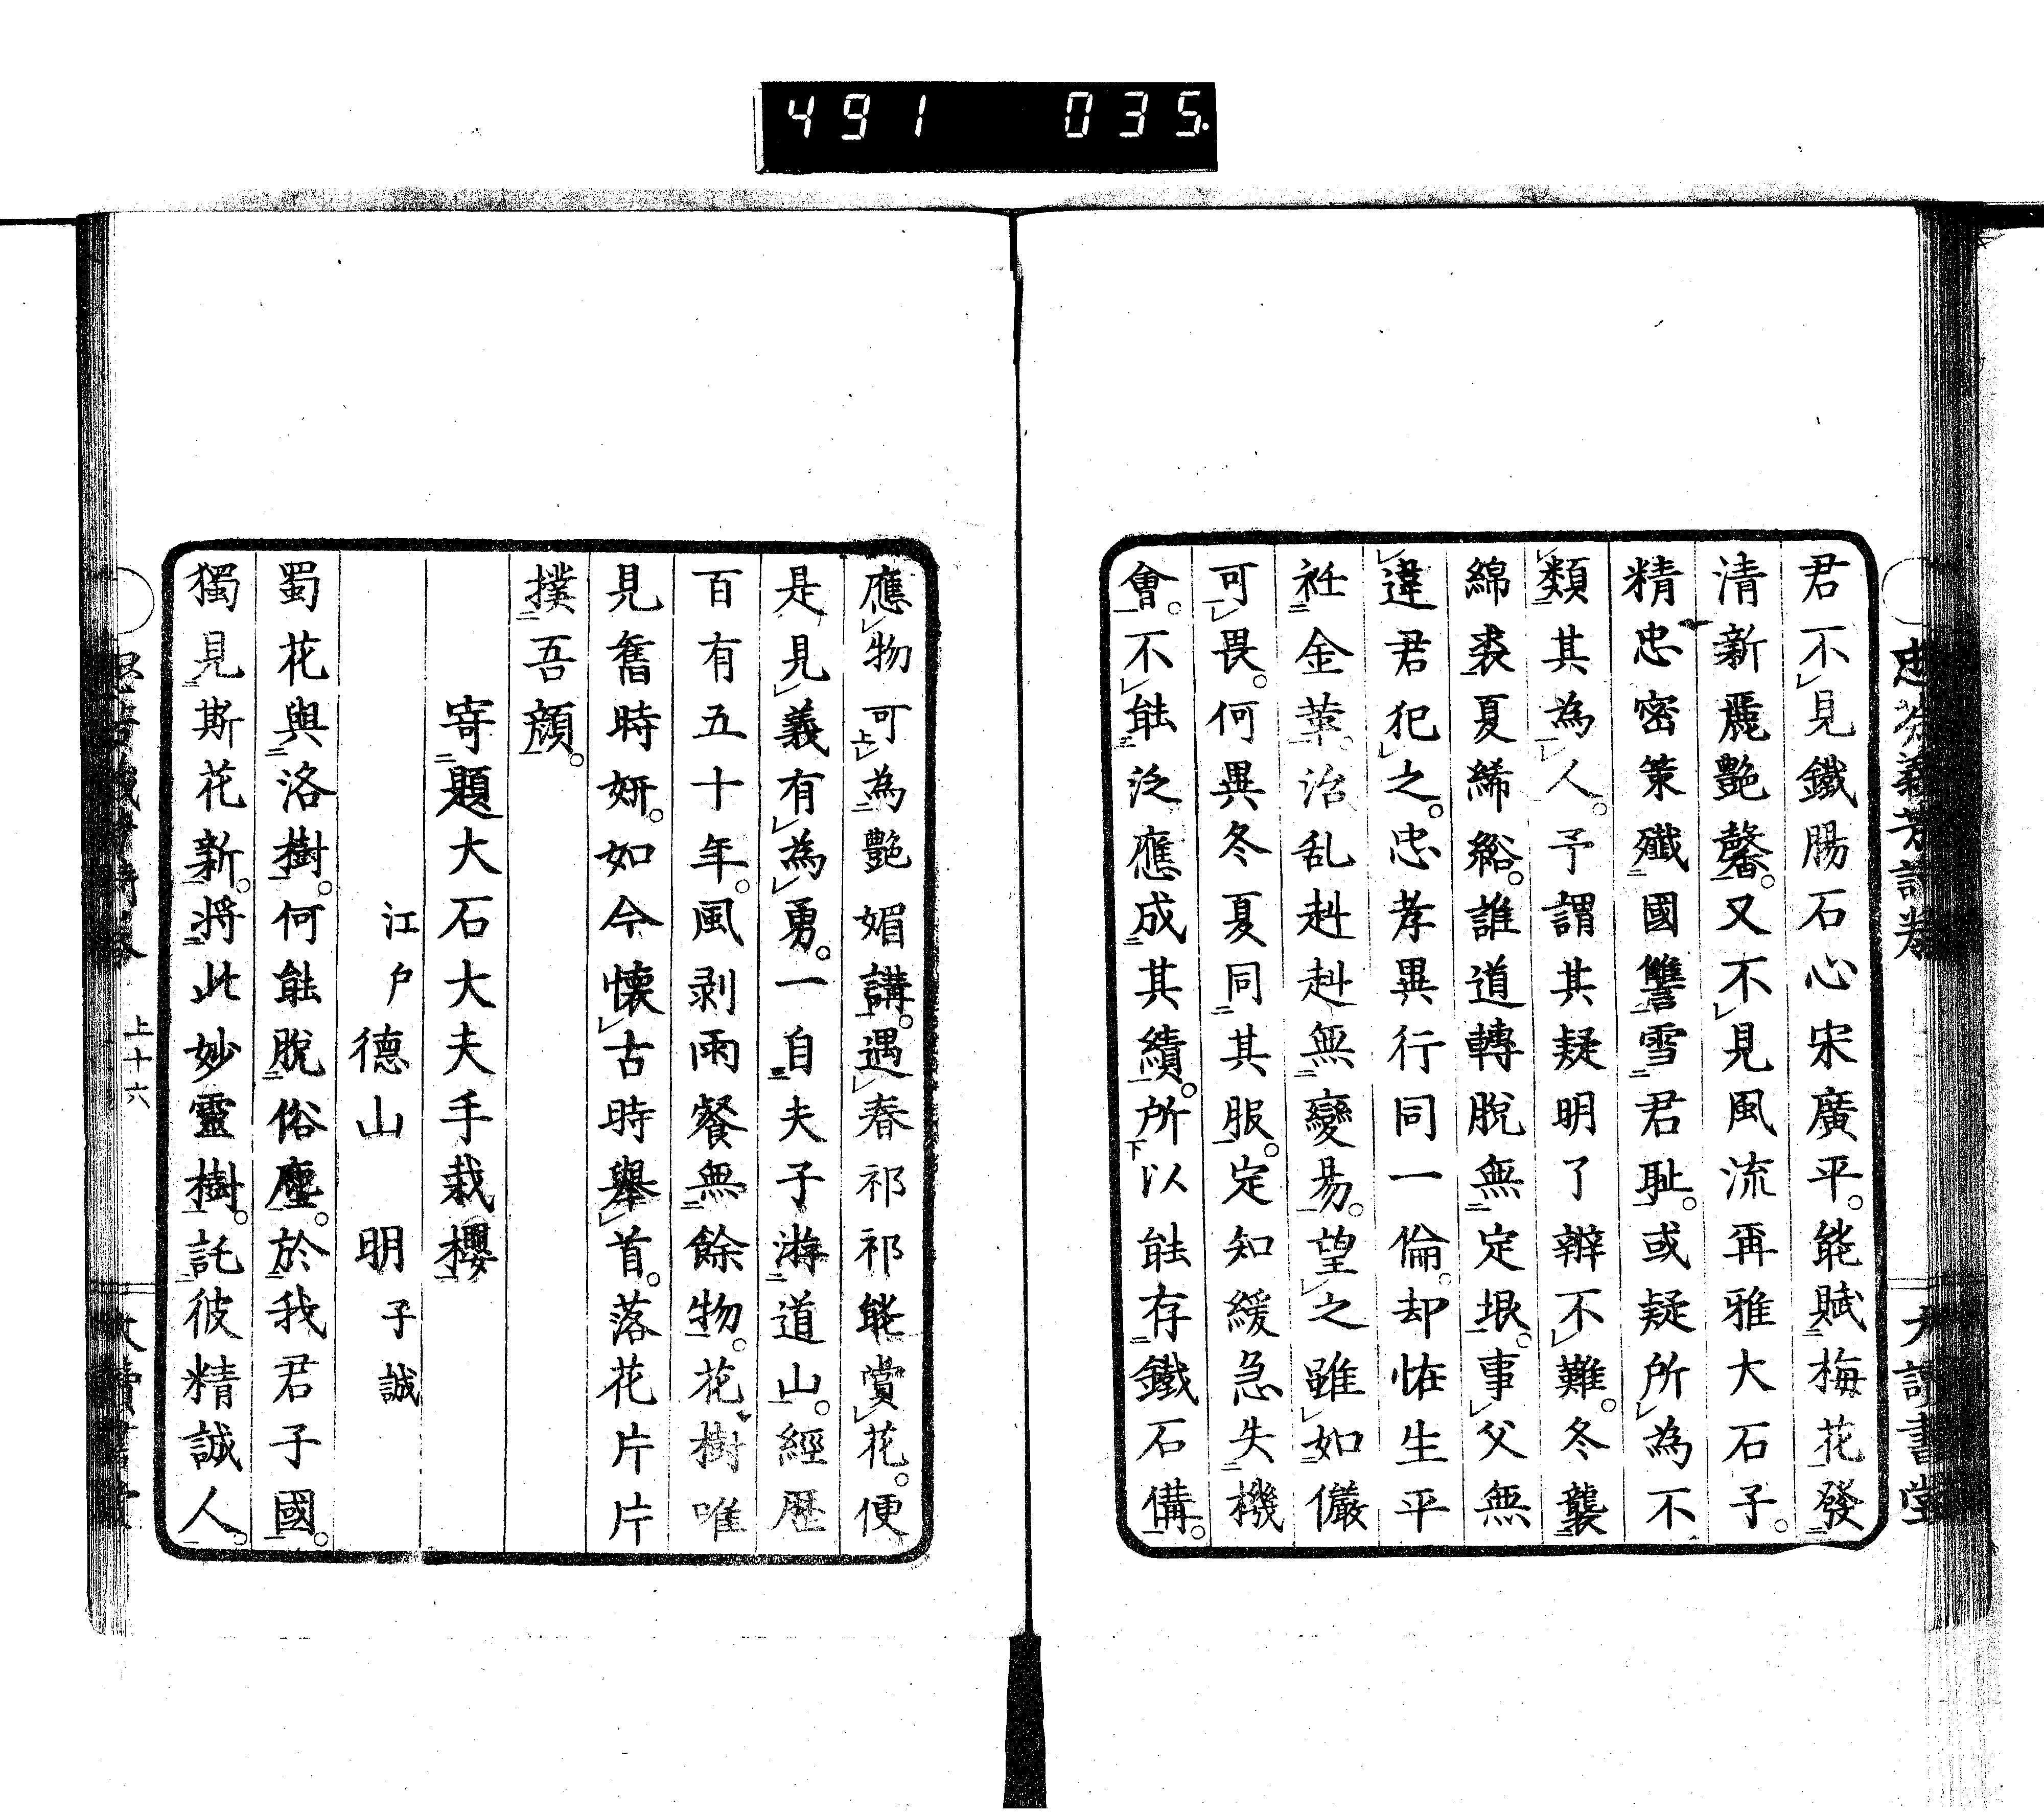 491 035
君不見鐵腸石心宋廣平。能賦梅花發
清新麗艶馨。又不見風流再雅大石子。
精忠密策殲國讐雪君恥。或疑所為不
類其為人。予謂其疑明了辯不難。冬襲
綿裘夏絺綌。誰道轉脫無定垠。事父無
違君犯之。忠孝異行同一倫。却恠生平
衽金革。治乱赳赳無變易。望之雖如儼
可畏。何異冬夏同其服。定知緩急失機
會。不能泛應成其績。所以能存鐵石備。
應物可為艶媚講。遇春祁祁能賞花。便
是見義有為勇。一自夫子游道山。經歷
百有五十年。風剥雨餐無餘物。花樹唯
見舊時妍。如今懷古時舉首。落花片片
撲吾顔。
寄題大石大夫手栽櫻
江戶德山 明子誠
蜀花與洛樹。何能脫俗塵。於我君子國。
獨見斯花新。將此妙靈樹。託彼精誠人。
上十六